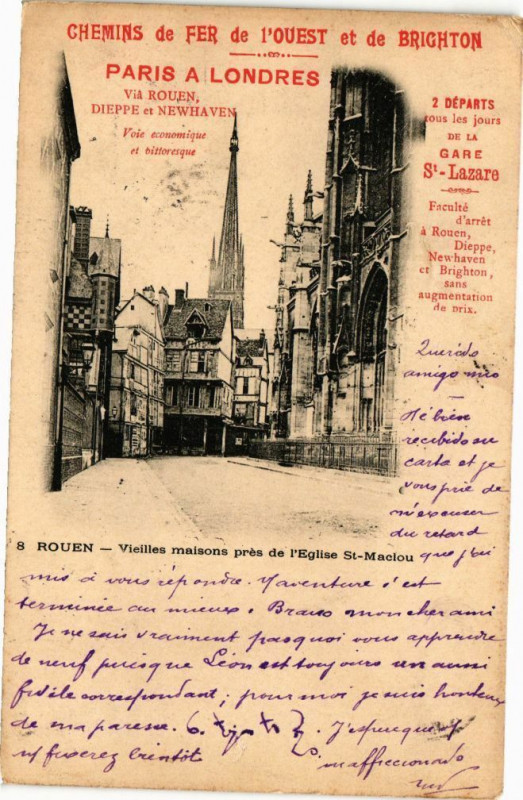 CHEMINS de FER de l'OUEST et de BRIGHTON
PARIS A LONDRES
Viâ ROUEN,
DIEPPE et NEWHAVEN
Voie economique
et pittoresque
2 DÉPARTS
tous les jours
DE LA
GARE
St-Lazare
Faculté
d'arrêt
à Rouen,
Dieppe,
Newhaven
et Brighton,
sans
augmentation
de prix.
8 ROUEN — Vieilles maisons près de l'Eglise St-Maclou
Querido
amigo mio
Hé bien
recibido su
carta et je
vous prie de
m'excuser
du retard
que j'ai
mis à vous répondre. L'aventure s'est
terminée au mieux. Bravo mon cher ami
Je ne sais vraiment pas quoi vous apprendre
de neuf puisque Léon est toujours un aussi
fidèle correspondant; pour moi je suis honteux
de ma paresse. J'espère que
bientôt